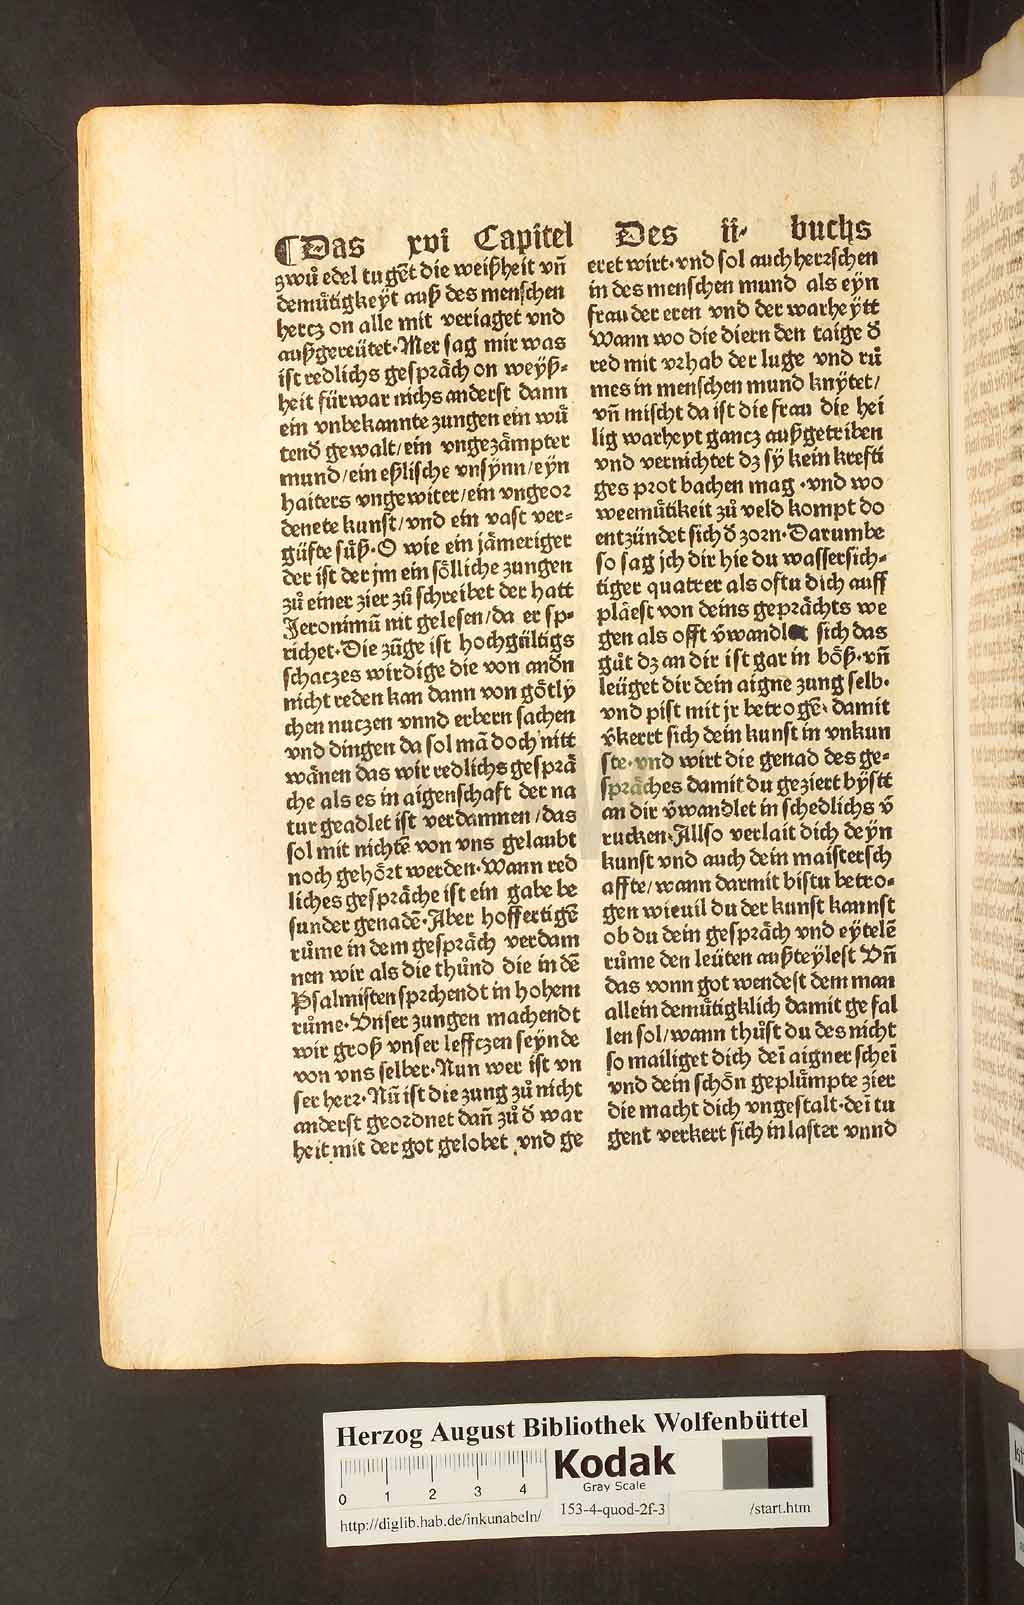 ¶Das xvi Capitel Des ii· buchs
zwů edel tugẽt die weißheit vñ
demůtigkeyt auß des menschen
hertcz on alle mit veriaget vnd
außgereütet·Mer sag mir was
ist redlichs gespräch on weyß⸗
heit fürwar nichs anderst dann
ein vnbekannte zungen ein wů
tend̕ gewalt/ein vngezämpter
mund/ein eßlische vnsÿnn/eÿn
haiters vngewiter/ein vngeor
denete kunst/vnd ein vast ver⸗
güfte süß·O wie ein jämeriger
der ist der jm ein sölliche zungen
zů einer zier zů schreibet der hatt
Jeronimũ nit gelesen/da er sp⸗
richet·Die zũge ist hochgültigs
schatzes wirdige die von and̕n
nicht reden kan dann von götlÿ
chen nutzen vnnd erbern sachen
vnd dingen da sol mã doch nitt
wänen das wir redlichs gesprä
che als es in aigenschaft der na
tur geadlet ist verdamnen/das
sol mit nichtẽ von vns gelaubt
noch gehört werden·Wann red
liches gespräche ist ein gabe be
sunder genadẽ·Aber hoffertigẽ
růme in dem gespräch verdam
nen wir als die thůnd die in dẽ
Psalmisten sprchendt in hohem
růme·Vnser zungen machendt
wir groß vnser lefftzen seÿnde
von vns selber·Nun wer ist vn
ser herr·Nũ ist die zung zů nicht
anderst geordnet dañ zů d̕ war
heit mit der got gelobet vnd ge
eret wirt·vnd sol auch herrschen
in des menschen mund als eÿn
frau der eren vnd der warheÿtt
Wann wo die diern den taige d̕
red mit vrhab der luge vnd rů
mes in menschen mund knÿtet/
vñ mischt da ist die frau die hei
lig warheyt gantz außgetriben
vnd vernichtet dz sÿ kein krefti
ges prot bachen mag·vnd wo
weemůtikeit zů veld kompt do
entzündet sich d̕ zorn·Darumbe
so sag jch dir hie du wassersich⸗
tiger quatrer als oftu dich auff
pläest von deins geprächts we
gen als offt v̕wandlet sich das
gůt dz an dir ist gar in böß·vñ
leüget dir dein aigne zung selb·
vnd pist mit jr betrogẽ·damit
v̕kerrt sich dein kunst in vnkun
ste·vnd wirt die genad des ge⸗
spräches damit du geziert bÿstt
an dir v̕wandlet in schedlichs v̕
rucken·Allso verlait dich deÿn
kunst vnd auch dein maistersch
affte/wann darmit bistu betro⸗
gen wieuil du der kunst kannst
ob du dein gespräch vnd eÿtelẽ
růme den leüten außteÿlest Vñ
das vonn got wendest dem man
allein demůtigklich damit ge fal
len sol/wann thůst du des nicht
so mailiget dich deĩ aigner scheĩ
vnd dein schön geplůmpte zier
die macht dich vngestalt·deĩ tu
gent verkert sich in laster vnnd
Herzog August Bibliothek Wolfenbüttel
0 1 2 3 4
Kodak
Gray Scale
http://diglib.hab.de/inkunabeln/ 153-4-quod-2f-3 /start.htm